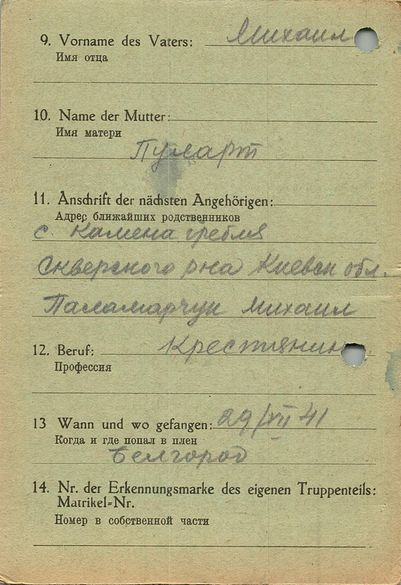 9. Vorname des Vaters: Михаил
Имя отца
10. Name der Mutter:
Имя матери
Пуларт
11. Anschrift der nächsten Angehörigen:
Адрес ближайших родственников
с. Камена гребля
Сквернского рна Киевск обл.
Паламарчук Михаил
12. Beruf: Крестянин
Профессия
13 Wann und wo gefangen: 29/VII 41
Когда и где попал в плен
Белгород
14. Nr. der Erkennungsmarke des eigenen Truppenteils:
Matrikel-Nr.
Номер в собственной части